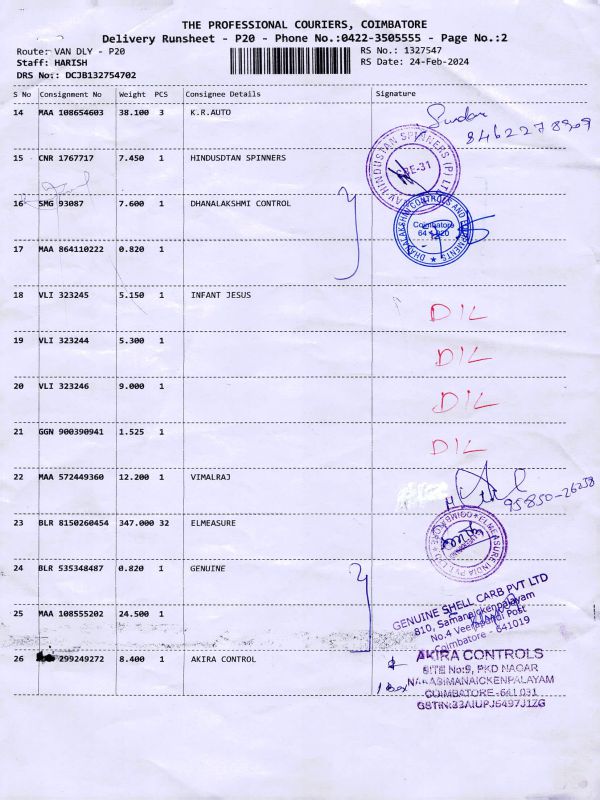 THE PROFESSIONAL COURIERS, COIMBATORE
Delivery Runsheet - P20 - Phone No.:0422-3505555 - Page No.:2
Route: VAN DLY - P20
Staff: HARISH
DRS No.: DCJB132754702
RS No.: 1327547
RS Date: 24-Feb-2024
S No Consignment No Weight PCS Consignee Details Signature
14 MAA 108654603 38.100 3 K.R.AUTO
15 CNR 1767717 7.450 1 HINDUSDTAN SPINNERS
HINDUSTAN SPINNERS (P) LT
CBE-31
16 SMG 93087 7.600 1 DHANALAKSHMI CONTROL
Coimbatore
17 MAA 864110222 0.820 1
18 VLI 323245 5.150 1 INFANT JESUS
D/L
19 VLI 323244 5.300 1
D/L
20 VLI 323246 9.000 1
D/L
21 GGN 900390941 1.525 1
D/L
22 MAA 572449360 12.200 1 VIMALRAJ
95850-26238
23 BLR 8150260454 347.000 32 ELMEASURE
ELMEASURE INDIA PVT. LTD
24 BLR 535348487 0.820 1 GENUINE
GENUINE SHELL CARB PVT LTD
810, Samanaickenpalayam
No.4 Veerapandi Post
Coimbatore - 641019
25 MAA 108555202 24.500 1
26 299249272 8.400 1 AKIRA CONTROL
AKIRA CONTROLS
SITE No:9, PKD NAGAR
NARASIMANAICKENPALAYAM
COIMBATORE-641 031
GSTIN:33AIUPJ6497J1ZG
1 Box